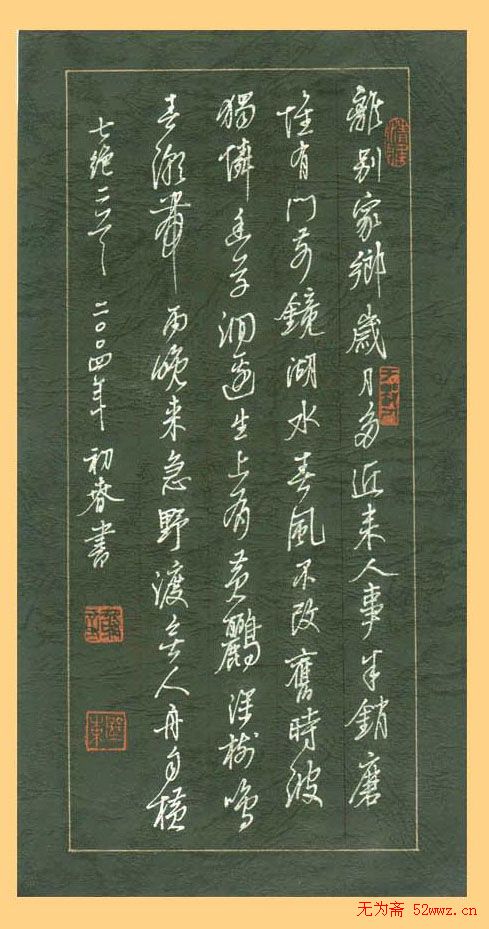 離别家鄉歲月多近来人事半銷磨
惟有门前鏡湖水春風不改舊時波
獨憐幽草澗邊生上有黄鸝深樹鳴
春潮帶雨晚来急野渡無人舟自横
七绝二首 二〇〇四年初春書
无为斋 52wwz.cn